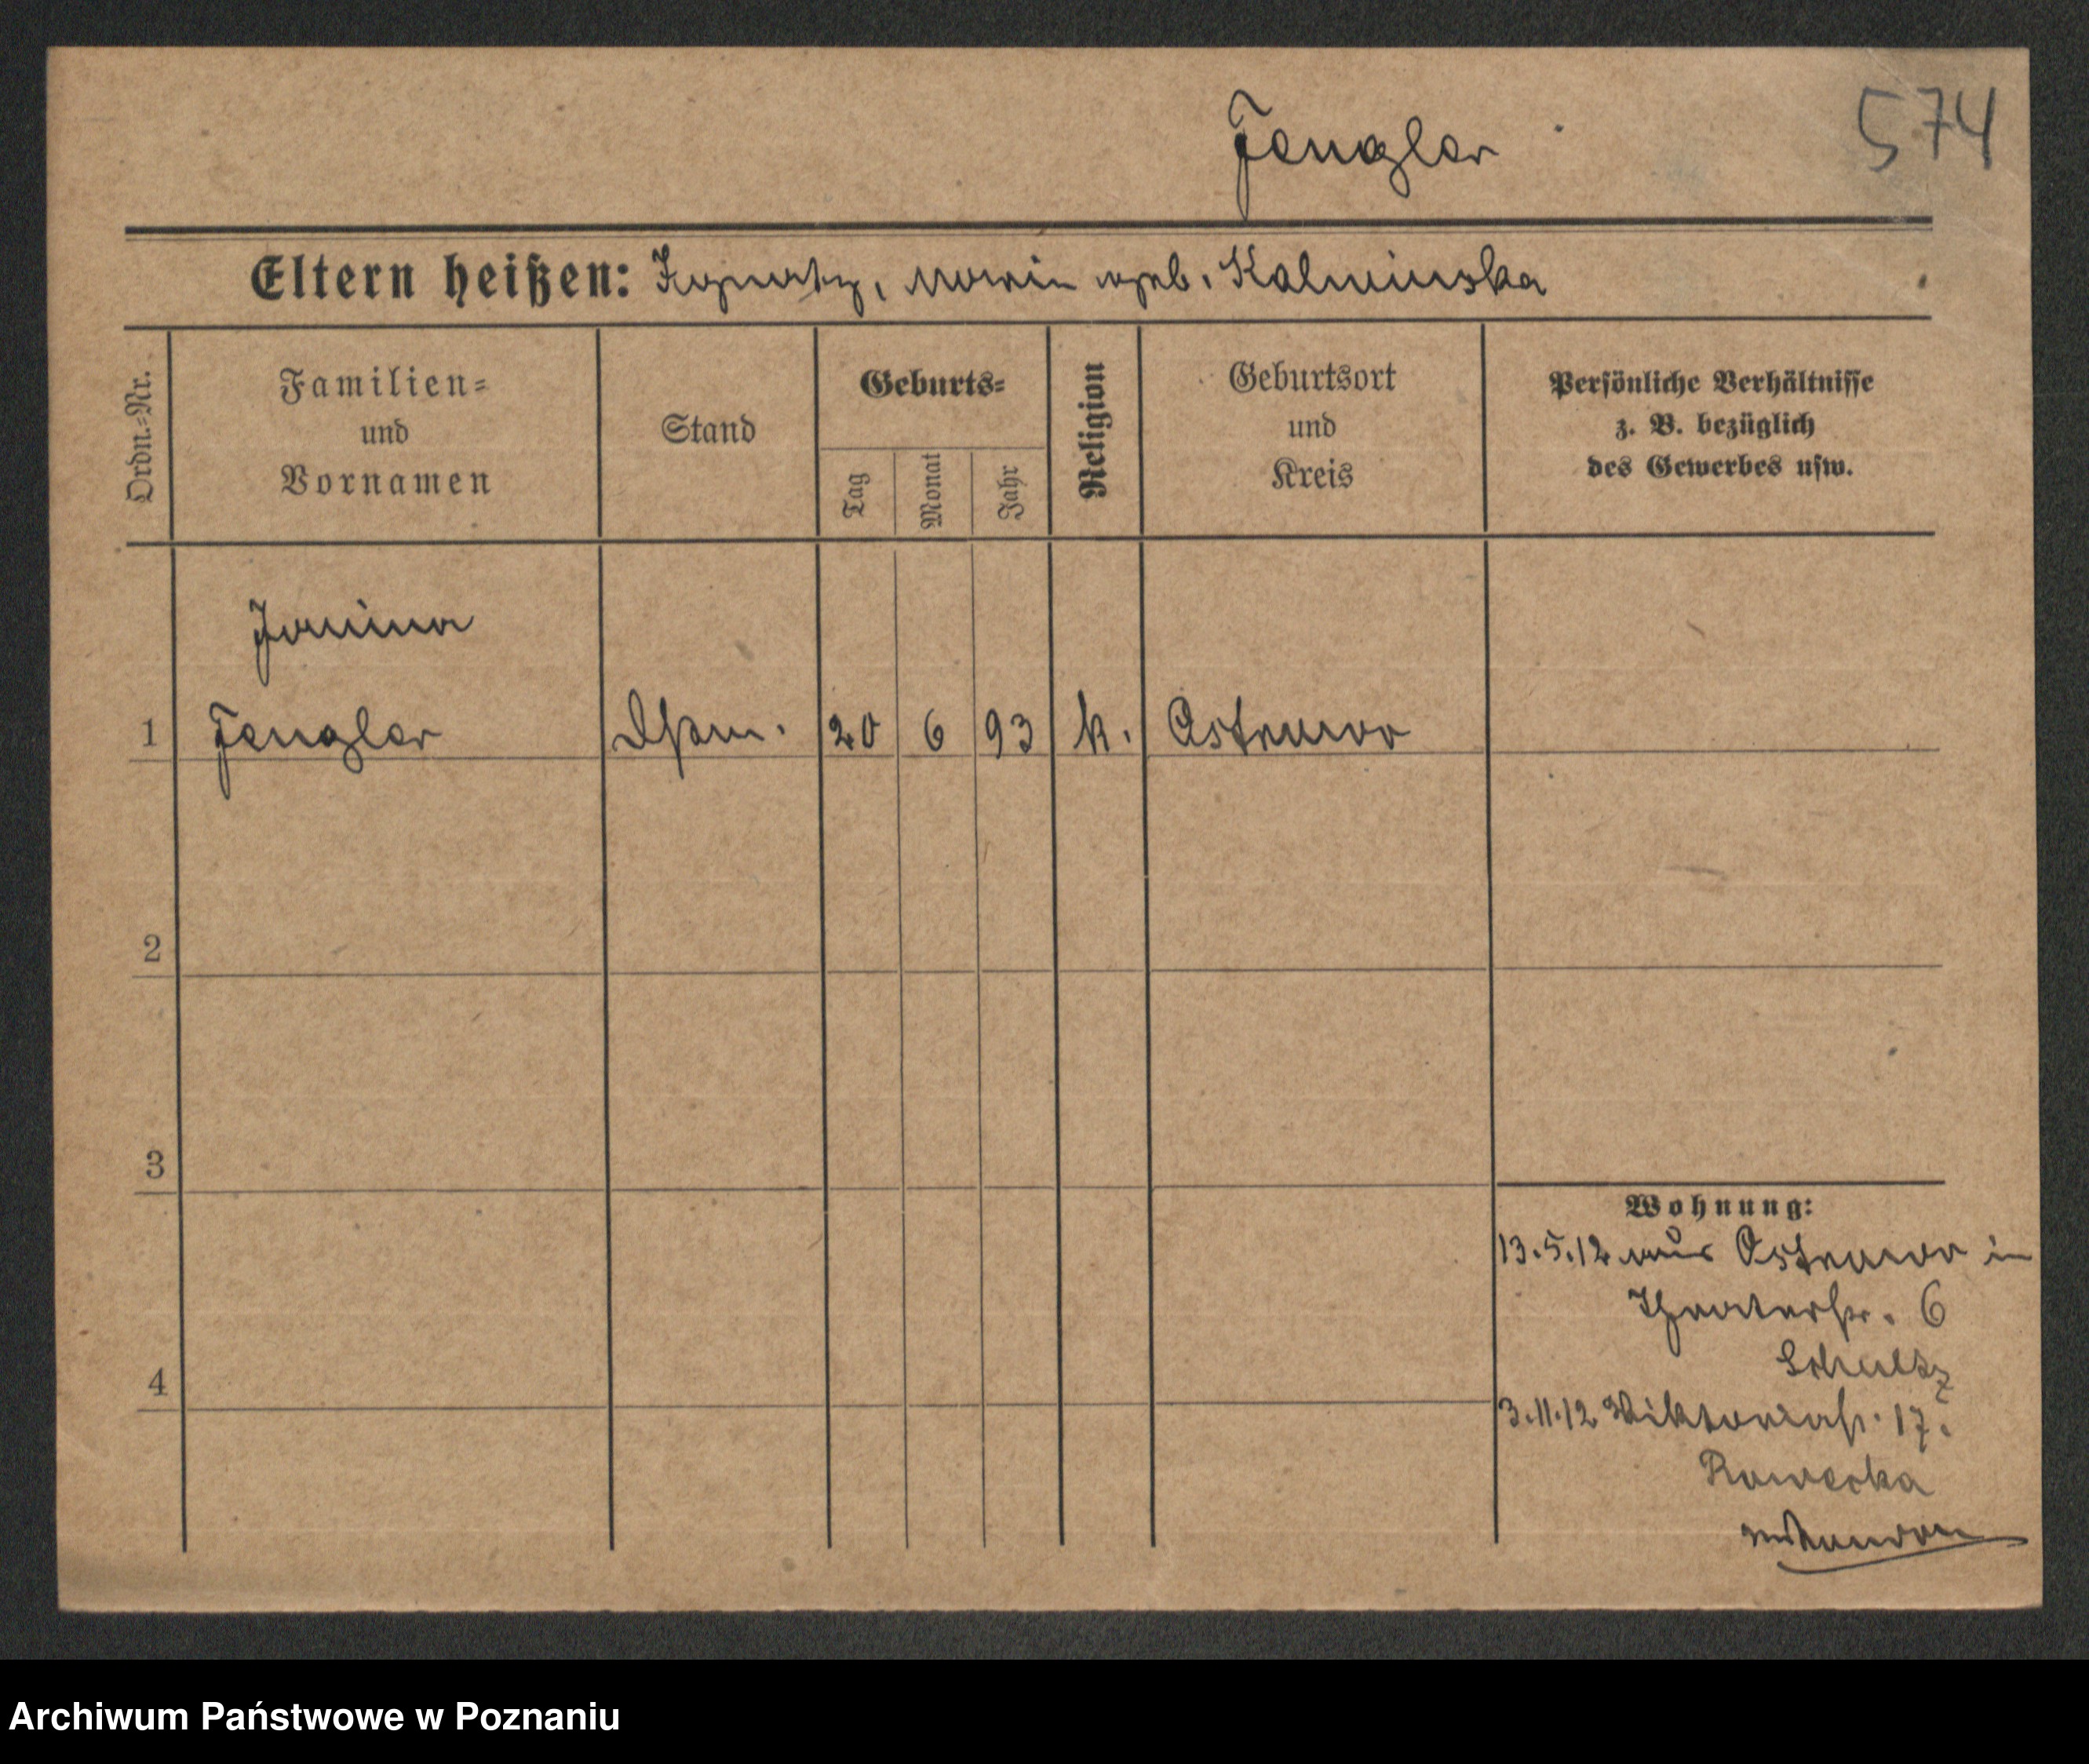 Fengler
574
Eltern heißen: Ignatz, Marie geb. Kalminska
Ordn.=Nr.
Familien=
und
Vornamen
Stand
Geburts=
Tag
Monat
Jahr
Religion
Geburtsort
und
Kreis
Persönliche Verhältnisse
z. B. bezüglich
des Gewerbes usw.
Janina
1 Fengler 20 6 93 k. Ostrowo
2
3
4
Wohnung:
13.5.12 aus Ostrowo in
Theaterstr. 6
Schultz
3.11.12 Viktoriastr. 17.
Archiwum Państwowe w Poznaniu